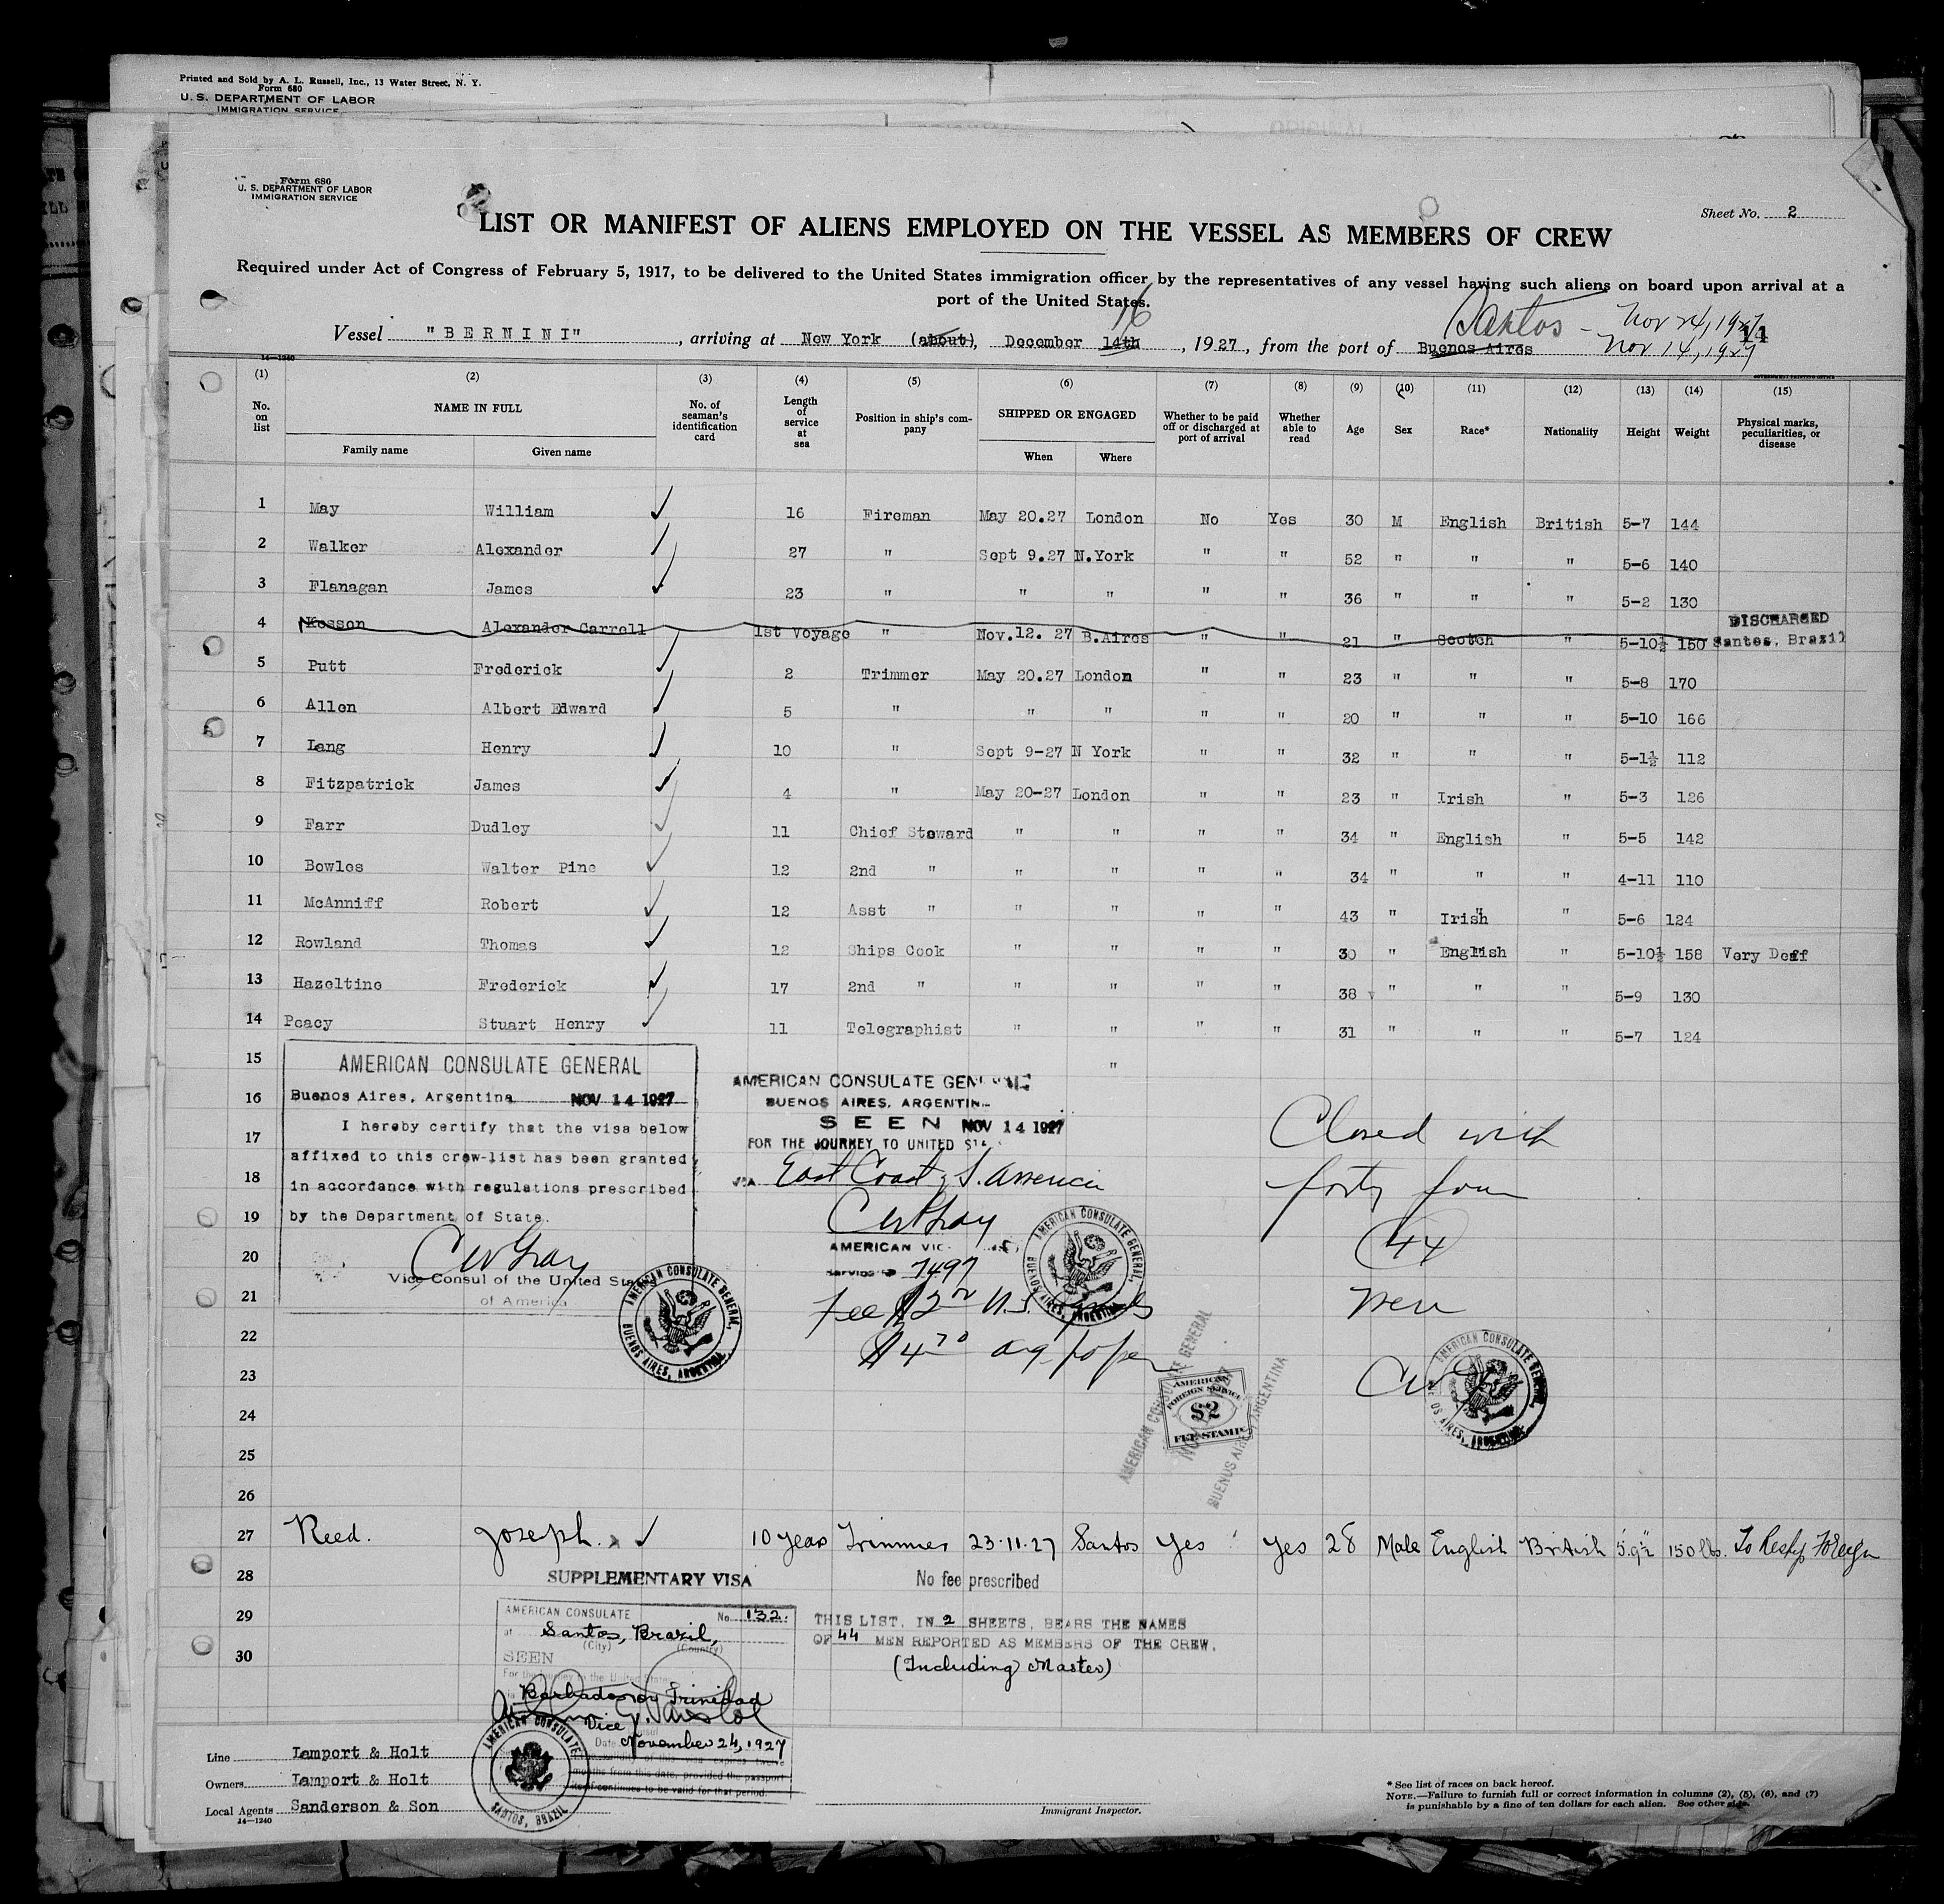 Printed and Sold by A. L. Russell, Inc., 13 Water Street, N. Y.
Form 680
U. S. DEPARTMENT OF LABOR
IMMIGRATION SERVICE
Form 680
U. S. DEPARTMENT OF LABOR
IMMIGRATION SERVICE
Sheet No. 2
LIST OR MANIFEST OF ALIENS EMPLOYED ON THE VESSEL AS MEMBERS OF CREW
Required under Act of Congress of February 5, 1917, to be delivered to the United States immigration officer by the representatives of any vessel having such aliens on board upon arrival at a
port of the United States.
16 Santos - Nov 24, 1927
Vessel "BERNINI", arriving at New York (about), December 14th, 1927, from the port of Buenos Aires Nov 14, 1927
14—1240
(1) (2) (3) (4) (5) (6) (7) (8) (9) (10) (11) (12) (13) (14) (15)
No. on list NAME IN FULL No. of seaman's identification card Length of service at sea Position in ship's company SHIPPED OR ENGAGED Whether to be paid off or discharged at port of arrival Whether able to read Age Sex Race* Nationality Height Weight Physical marks, peculiarities, or disease
Family name Given name When Where
1 May William 16 Fireman May 20.27 London No Yes 30 M English British 5-7 144
2 Walker Alexander 27 " Sept 9.27 N.York " " 52 " " " 5-6 140
3 Flanagan James 23 " " " " " 36 " " " 5-2 130
4 Kesson Alexander Carrell 1st Voyage " Nov.12. 27 B.Aires " " 21 " Scotch " 5-10½ 150 DISCHARGED Santos, Brazil
5 Putt Frederick 2 Trimmer May 20.27 London " " 23 " " " 5-8 170
6 Allen Albert Edward 5 " " " " " 20 " " " 5-10 166
7 Lang Henry 10 " Sept 9-27 N York " " 32 " " " 5-1½ 112
8 Fitzpatrick James 4 " May 20-27 London " " 23 " Irish " 5-3 126
9 Farr Dudley 11 Chief Steward " " " " 34 " English " 5-5 142
10 Bowles Walter Pine 12 2nd " " " " " 34 " " " 4-11 110
11 McAnniff Robert 12 Asst " " " " " 43 " Irish " 5-6 124
12 Rowland Thomas 12 Ships Cook " " " " 30 " English " 5-10½ 158 Very Deaf
13 Hazeltine Frederick 17 2nd " " " " " 38 " " " 5-9 130
14 Peacy Stuart Henry 11 Telegraphist " " " " 31 " " " 5-7 124
15 "
16
17
18
19
20
21
22
23
24
25
26
AMERICAN CONSULATE GENERAL
Buenos Aires, Argentina NOV 14 1927
I hereby certify that the visa below
affixed to this crew-list has been granted
in accordance with regulations prescribed
by the Department of State.
CW Gray
Vice Consul of the United States
of America
AMERICAN CONSULATE GENERAL, BUENOS AIRES, ARGENTINA
AMERICAN CONSULATE GENERAL
BUENOS AIRES, ARGENTINA
SEEN NOV 14 1927
FOR THE JOURNEY TO UNITED STA
VIA East Coast of S. America
CW Gray
AMERICAN VIC
Service No 7497
Fee $2.00 U.S.
$4.70 arg. paper
AMERICAN CONSULATE GENERAL, BUENOS AIRES, ARGENTINA
AMERICAN CONSULATE GENERAL
BUENOS AIRES, ARGENTINA
AMERICAN FOREIGN SERVICE
$2
FEE STAMP
Closed with
forty four
(44)
men
CWG
AMERICAN CONSULATE GENERAL, BUENOS AIRES, ARGENTINA
27 Reed. Joseph. 10 years Trimmer 23.11.27 Santos Yes Yes 28 Male English British 5'.9½" 150 lbs. To Reship Foreign
28 SUPPLEMENTARY VISA No fee prescribed
29
30
AMERICAN CONSULATE No. 132.
at Santos, Brazil,
(City) (Country)
SEEN
For the journey to the United States
Barbados or Trinidad
Vice Consul
Date November 24, 1927
months from this date, provided the passport
itself continues to be valid for that period.
AMERICAN CONSULATE SANTOS, BRAZIL
THIS LIST, IN 2 SHEETS, BEARS THE NAMES
OF 44 MEN REPORTED AS MEMBERS OF THE CREW.
(Including Master)
Line Lamport & Holt
Owners Lamport & Holt
Local Agents Sanderson & Son
14—1240
Immigrant Inspector.
* See list of races on back hereof.
NOTE.—Failure to furnish full or correct information in columns (2), (5), (6), and (7)
is punishable by a fine of ten dollars for each alien. See other side.